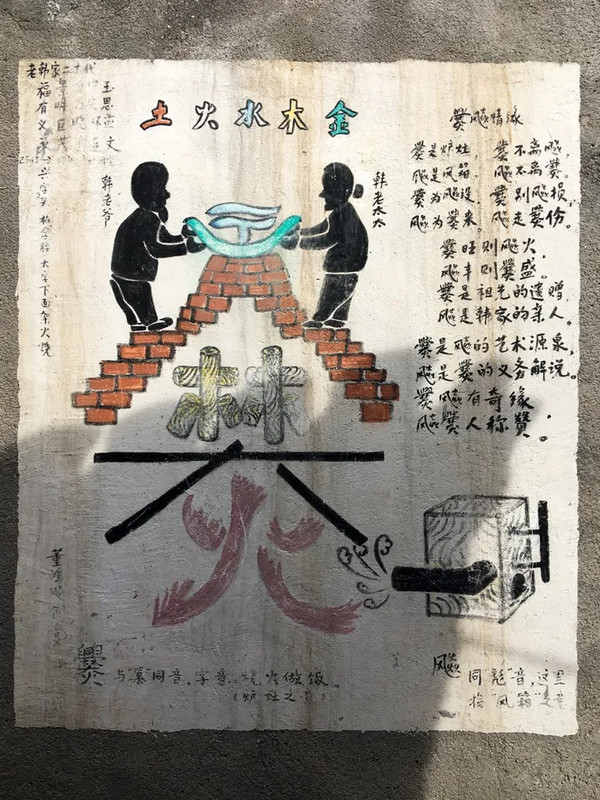 土火水木金
爨飚情缘
爨是炉灶， 爨不离飚，
飚是风箱。 飚不离爨。
飚损，
飚为爨来。 飚走爨份。
爨旺则飚火，
飚丰则爨盛。
爨是祖艺的遗赠
飚是韩家的亲人。
爨是飚的艺术源泉，
飚是爨的义务解说。
爨飚有奇缘
飚爨有人称赞。
老韩家二十代
福有义
兴字头 林 大字下面架火烧
玉思 文
韩老爷
韩老太太
林
大
火
爨 与"篡"同音，字意：烧火做饭。
（炉灶之意）
飚 同"彪"音，这里
指"风箱"之意